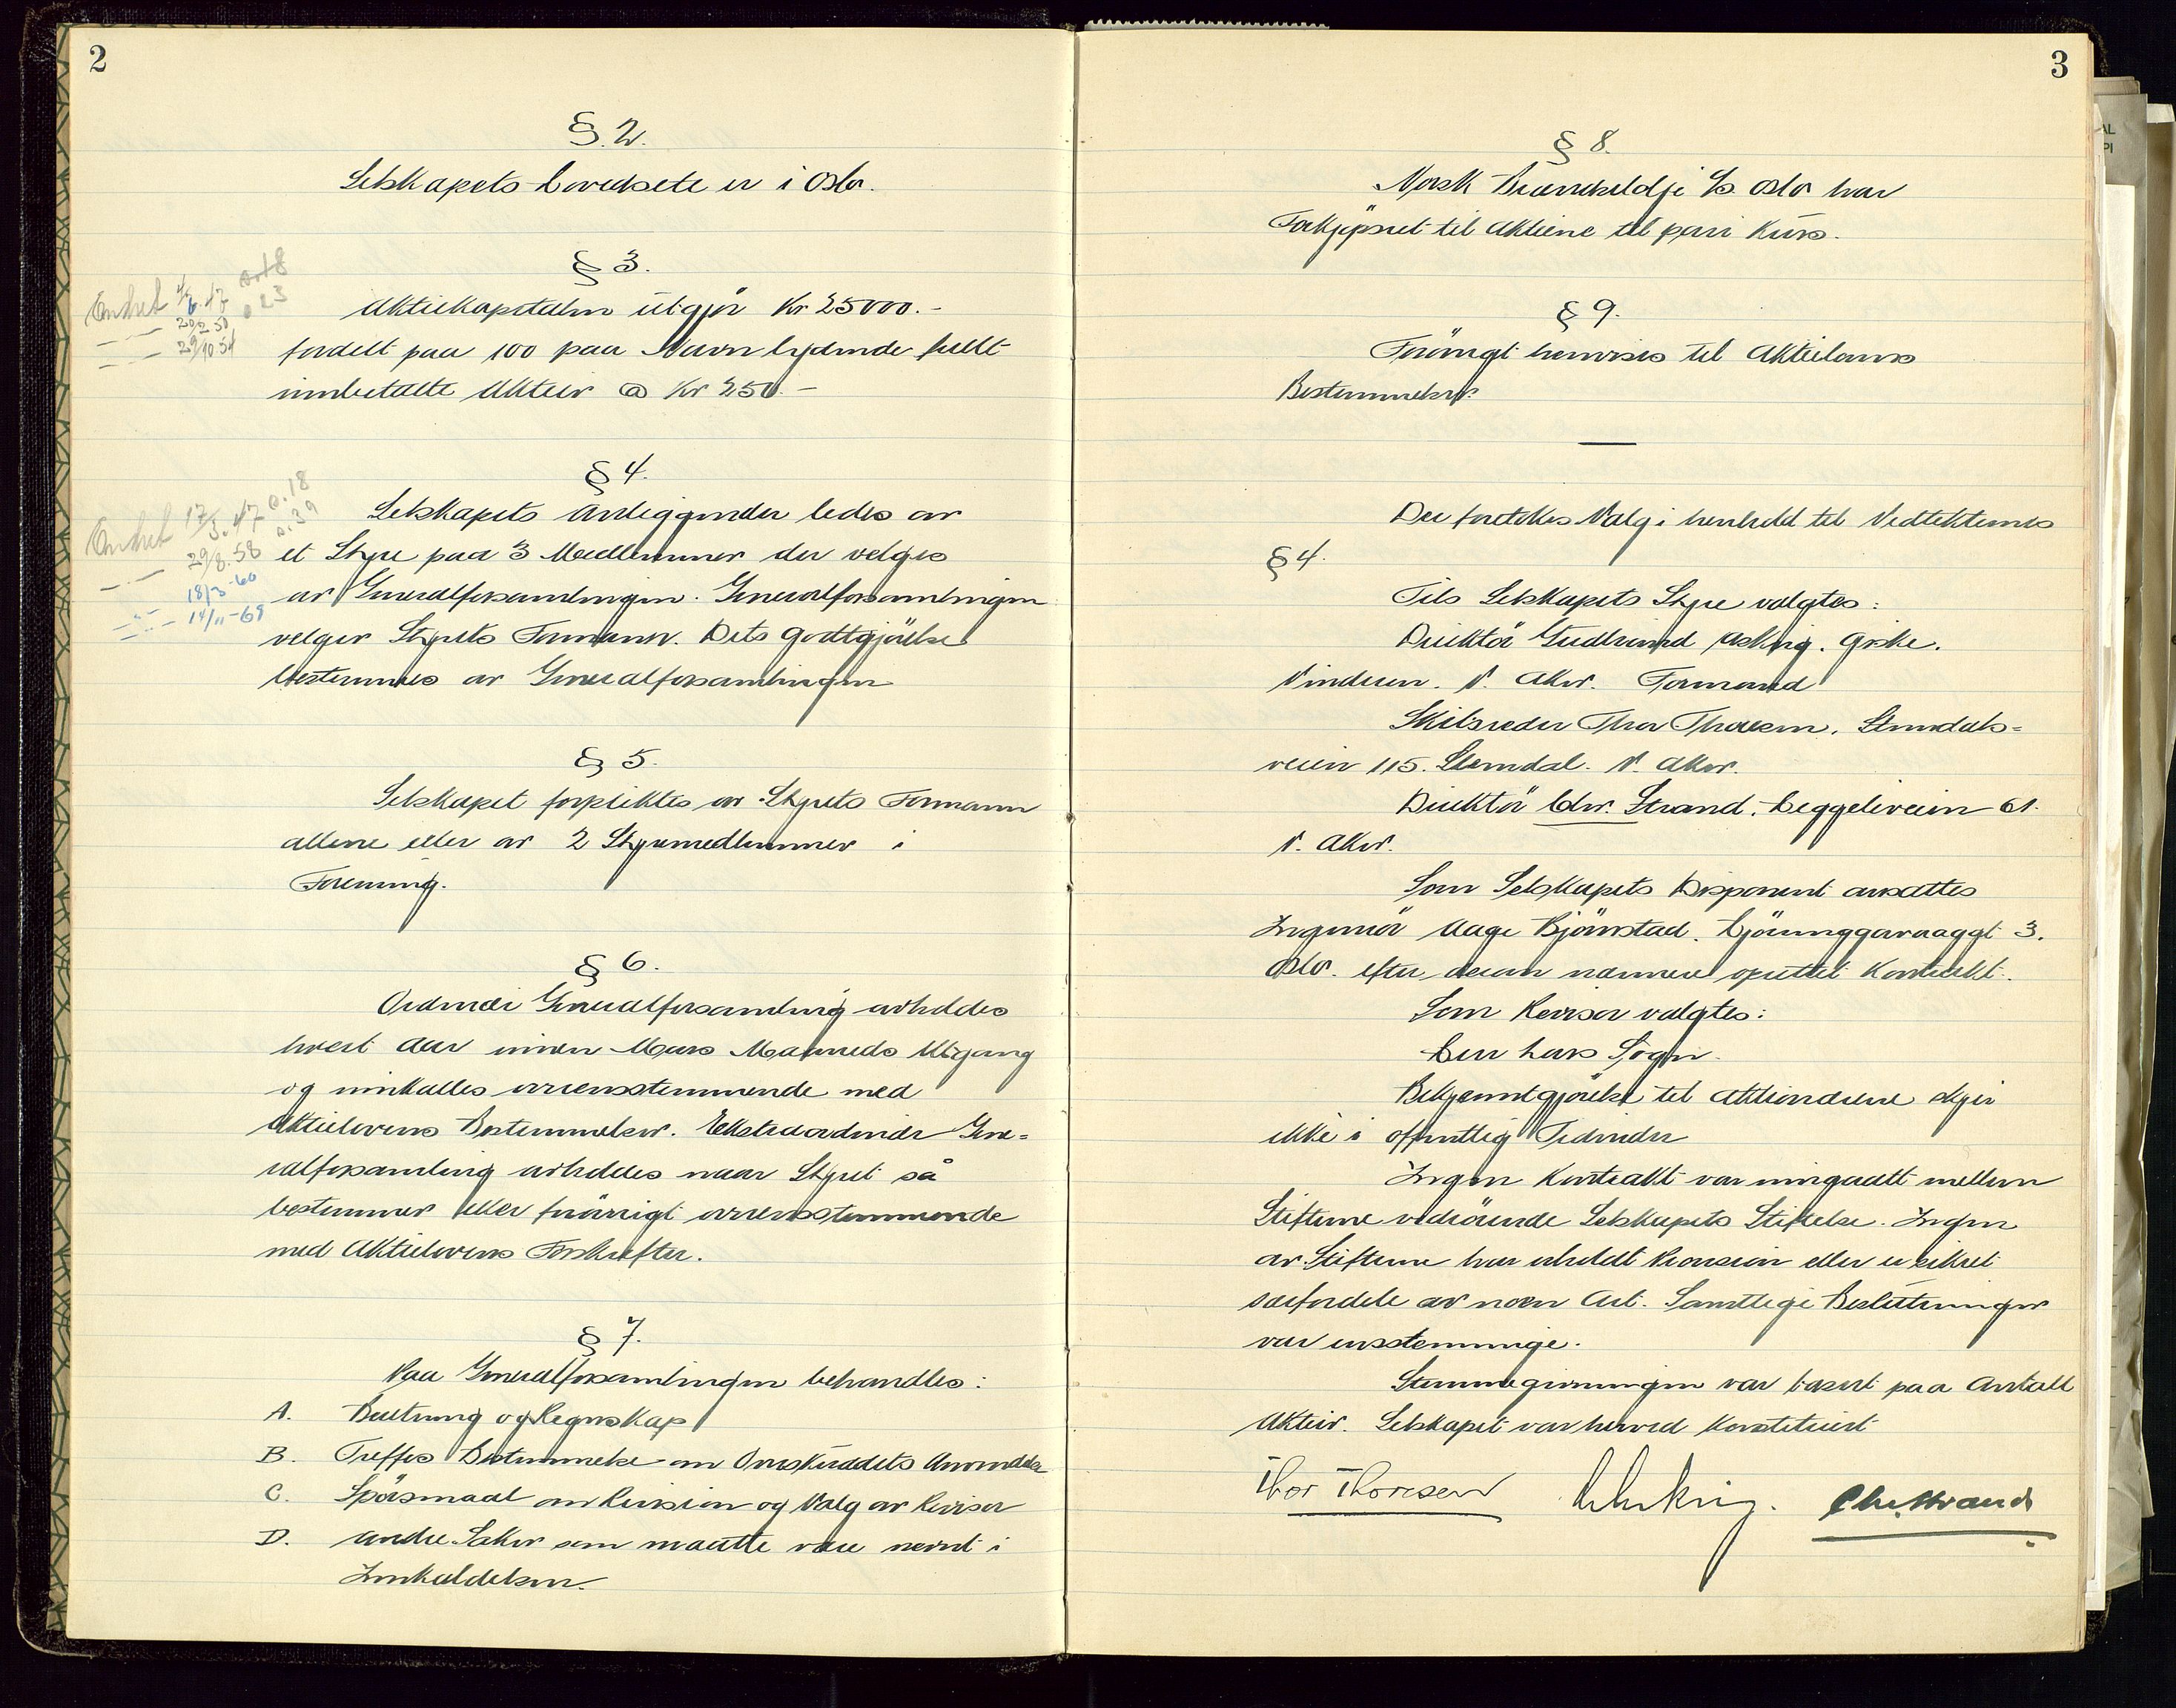 2
§ 2.
Selskapets Hovedsete er i Oslo.
§ 3.
Endret 1/6.47 s. 18
20/2.50 s. 23
29/10.54
Aktiekapitalen utgjør Kr 25000.-
fordelt paa 100 paa Navn lydende fullt
innbetalte Aktier @ Kr 250.-
§ 4.
Endret 17/3.47 s. 18
29/8.58 s. 39
18/3-60
14/11-68
Selskapets Anliggender ledes av
et Styre paa 3 Medlemmer der velges
av Generalforsamlingen. Generalforsamlingen
velger Styrets Formann. Dets Godtgjörelse
bestemmes av Generalforsamlingen
§ 5.
Selskapet forpliktes av Styrets Formann
allene eller av 2 Styremedlemmer i
Forening.
§ 6.
Ordinær Generalforsamling avholdes
hvert Aar innen Mars Maaneds Utgang
og innkalles overensstemmende med
Aktielovens Bestemmelser. Ekstraordinær Gene=
ralforsamling avholdes naar Styret så
bestemmer eller forövrigt overensstemmende
med Aktielovens Forskrifter.
§ 7.
Paa Generalforsamlingen behandles:
A. Beretning og Regnskap
B. Treffes Bestemmelse om Overskuddets Anvendelse
C. Spörsmaal om Revision og Valg av Revisor
D. Andre Saker som maatte være nevnt i
Innkaldelsen.
3
§ 8.
Norsk Brændselolje A/S Oslo har
Forkjöpsret til Aktiene til pari Kurs.
§ 9.
Forövrigt henvises til Aktielovens
Bestemmelser.
Der foretokes Valg i henhold til Vedtektenes
§ 4.
Til Selskapets Styre valgtes:
Direktör Gudbrand Asking. Griske.
Vinderen. V. Aker. Formand
Skibsreder Thor Thoresen. Slemdals=
veien 115. Slemdal. V. Aker.
Direktör Chr. Strand. Heggeliveien 61.
V. Aker.
Som Selskapets Disponent ansattes
Ingeniör Aage Björnstad. Gjörunggaraaggt 3.
Oslo. efter derom nærmere oprettet Kontrakt.
Som Revisor valgtes:
Herr Lars Sogn.
Bekjenntgjörelse til Aktionærene skjer
ikke i offentlig Tidender
Ingen Kontrakt var inngaatt mellem
Stifterne vedrörende Selskapets Stiftelse. Ingen
av Stifterne har erholdt Provision eller er sikret
særfordele av noen Art. Samtlige Beslutninger
var enstemmige.
Stemmegivningen var basert paa Antall
Aktier. Selskapet var herved Konstituert
Thor Thoresen Chr. Strand